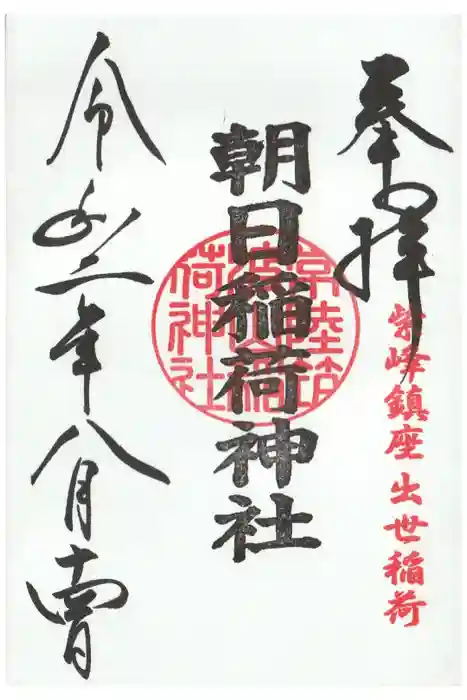 奉拝
紫峰鎮座 出世稲荷
朝日稲荷神社
常陸筑
荷神社
令和二年八月